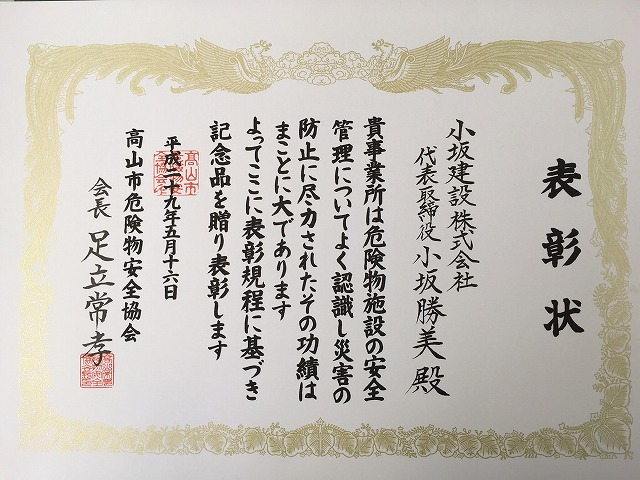 表彰状
小坂建設株式会社
代表取締役 小坂勝美 殿
貴事業所は危険物施設の安全
管理についてよく認識し災害の
防止に尽力されたその功績は
まことに大であります
よってここに表彰規程に基づき
記念品を贈り表彰します
平成二十九年五月十六日
高山市危険物安全協会
会長 足立常孝